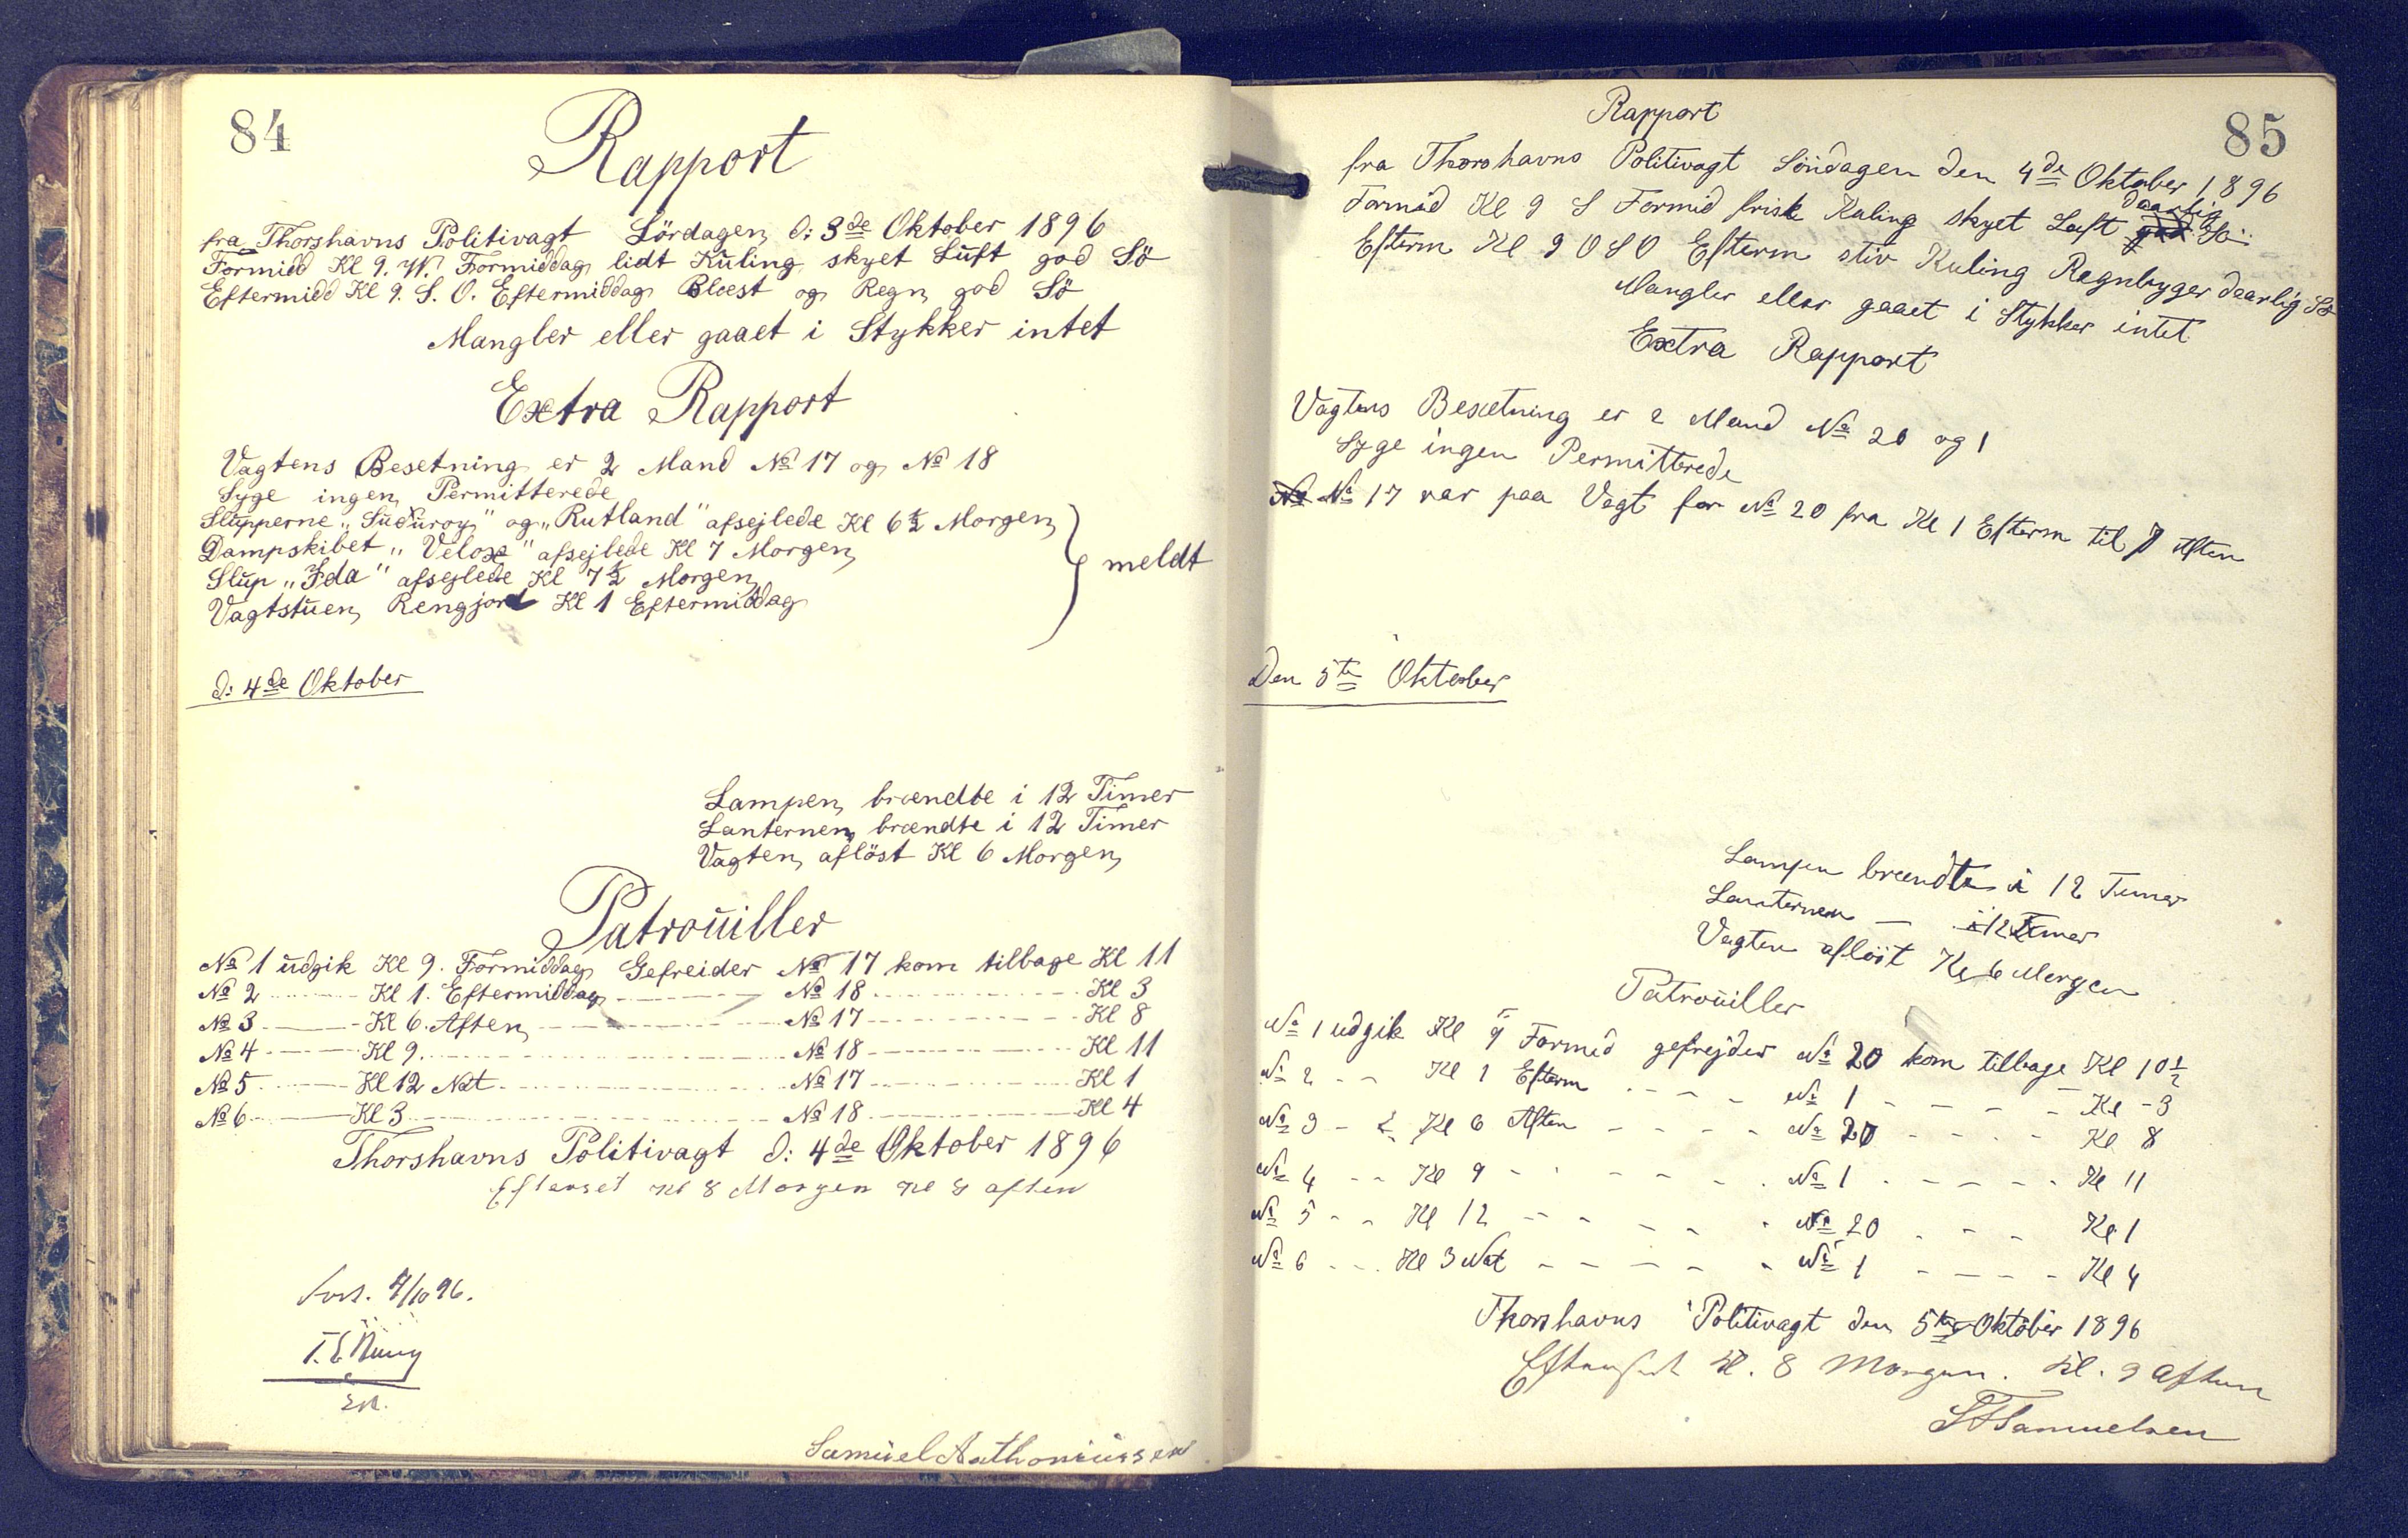 84
Rapport
fra Thorshavns Politivagt Lördagen d: 3de Oktober 1896
Formidd Kl 9. W. Formiddag lidt Kuling skyet Luft god Sö
Eftermidd Kl 9. S. O. Eftermiddag Blæst og Regn god Sö
Mangler eller gaaet i Stykker intet
Extra Rapport
Vagtens Besetning er 2 Mand No 17 og No 18
Syge ingen Permitterede
Slupperne „Suduroy" og „Rutland" afsejlede Kl 6½ Morgen
Dampskibet „Velox" afsejlede Kl 7 Morgen
Slup „Ida" afsejlede Kl 7½ Morgen
Vagtstuen Rengjort Kl 1 Eftermiddag
meldt
d: 4de Oktober
Lampen brændte i 12 Timer
Lanternen brændte i 12 Timer
Vagten aflöst Kl 6 Morgen
Patrouiller
No 1 udgik Kl 9. Formiddag Gefreider No 17 kom tilbage Kl 11
No 2 Kl 1. Eftermiddag No 18 Kl 3
No 3 Kl 6. Aften No 17 Kl 8
No 4 Kl 9. No 18 Kl 11
No 5 Kl 12 Nat No 17 Kl 1
No 6 Kl 3 No 18 Kl 4
Thorshavns Politivagt d: 4de Oktober 1896
Efterset Kl 8 Morgen Kl 9 aften
/10 96.
Samuel Nathoniussen
85
Rapport
fra Thorshavns Politivagt Söndagen den 4de Oktober 1896
Formid Kl 9 S Formid frisk Kuling skyet Luft god daarlig Sö
Efterm Kl 9 O S O Efterm stiv Kuling Regnbyger daarlig Sö
Mangler eller gaaet i Stykker intet
Extra Rapport
Vagtens Besætning er 2 Mand No 20 og 1
Syge ingen Permitterede
No No 17 var paa Vagt for No 20 fra Kl 1 Efterm til 7 Aften
Den 5te Oktober
Lampen brændte i 12 Timer
Lanternen — i 12 Timer
Vagten aflöst Kl 6 Morgen
Patrouiller
No 1 udgik Kl 9 Formid gefrejder No 20 kom tilbage Kl 10½
No 2 - - Kl 1 Efterm - - - - No 1 - - - - Kl - 3
No 3 - - Kl 6 Aften - - - - No 20 - - - - Kl 8
No 4 - - Kl 9 - - - - - No 1 - - - - - Kl 11
No 5 - - Kl 12 - - - - - No 20 - - - Kl 1
No 6 - - Kl 3 Nat - - - - - No 1 - - - - Kl 4
Thorshavns Politivagt den 5te Oktober 1896
Efterset Kl. 8 Morgen. Kl. 9 aften
Samuelsen